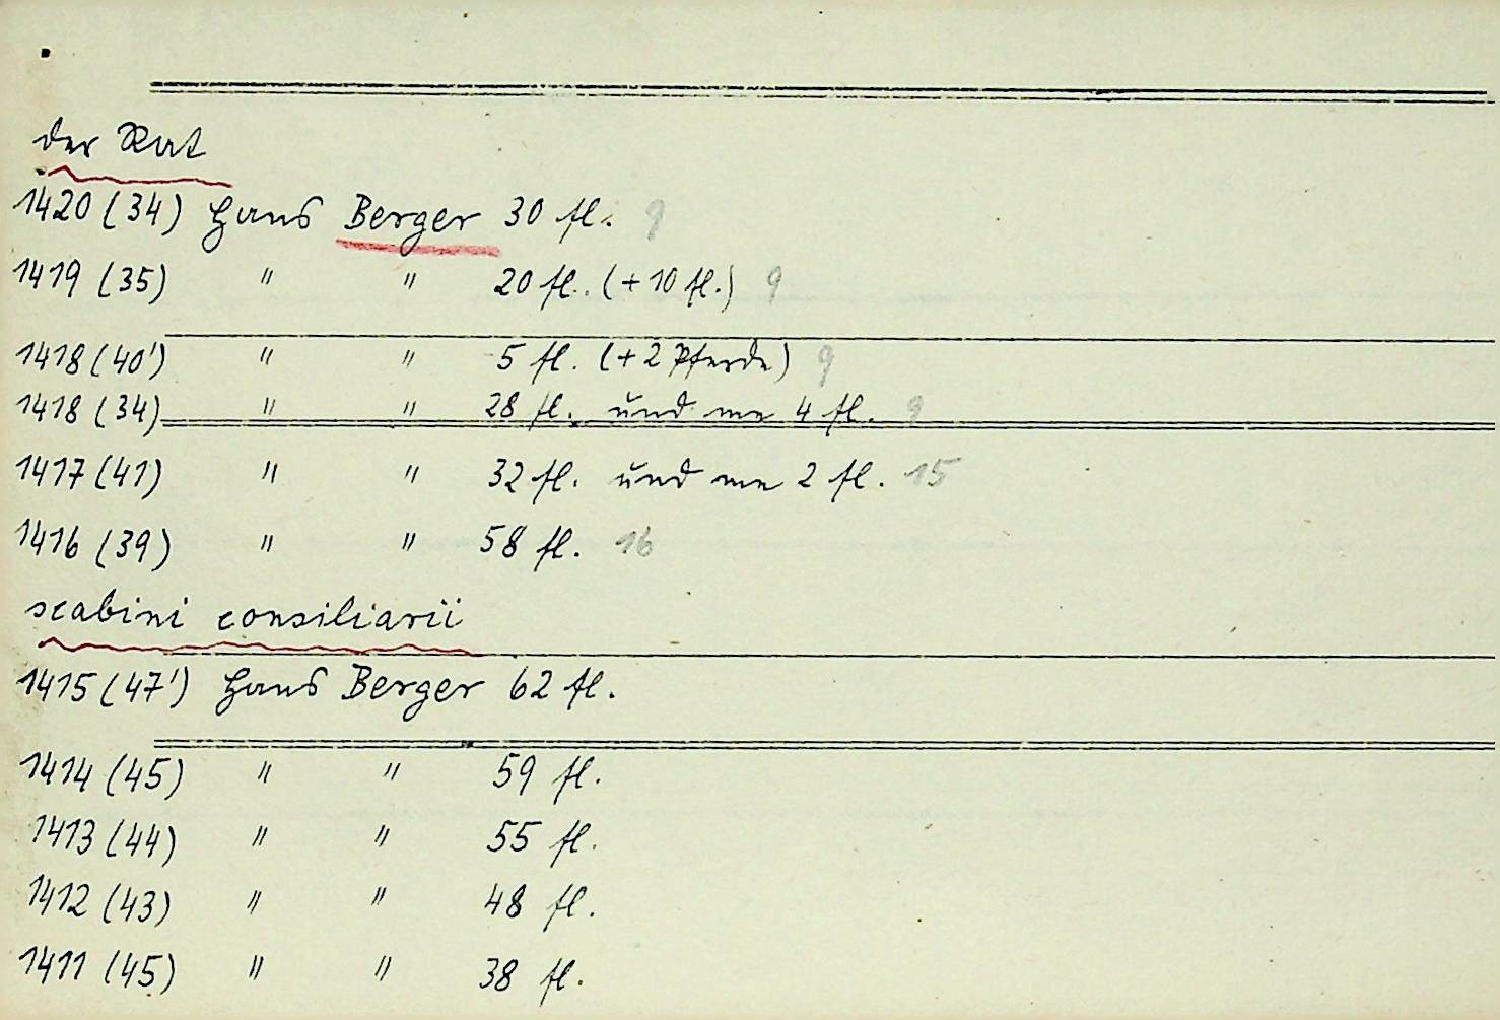 der Rat
1420 (34) Hans Berger 30 fl. 9
1419 (35) " " 20 fl. (+ 10 fl.) 9
1418 (40') " " 5 fl. (+ 2 Pferde) 9
1418 (34) " " 28 fl. und me 4 fl. 9
1417 (41) " " 32 fl. und me 2 fl. 15
1416 (39) " " 58 fl. 16
scabini consiliarii
1415 (47') Hans Berger 62 fl.
1414 (45) " " 59 fl.
1413 (44) " " 55 fl.
1412 (43) " " 48 fl.
1411 (45) " " 38 fl.